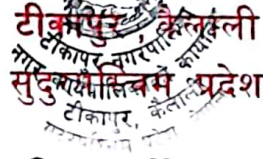 टीकापुर, कैलाली
सुदुरपश्चिम प्रदेश
टीकापुर नगरपालिका
नगर कार्यपालिकाको कार्यालय
टीकापुर, कैलाली